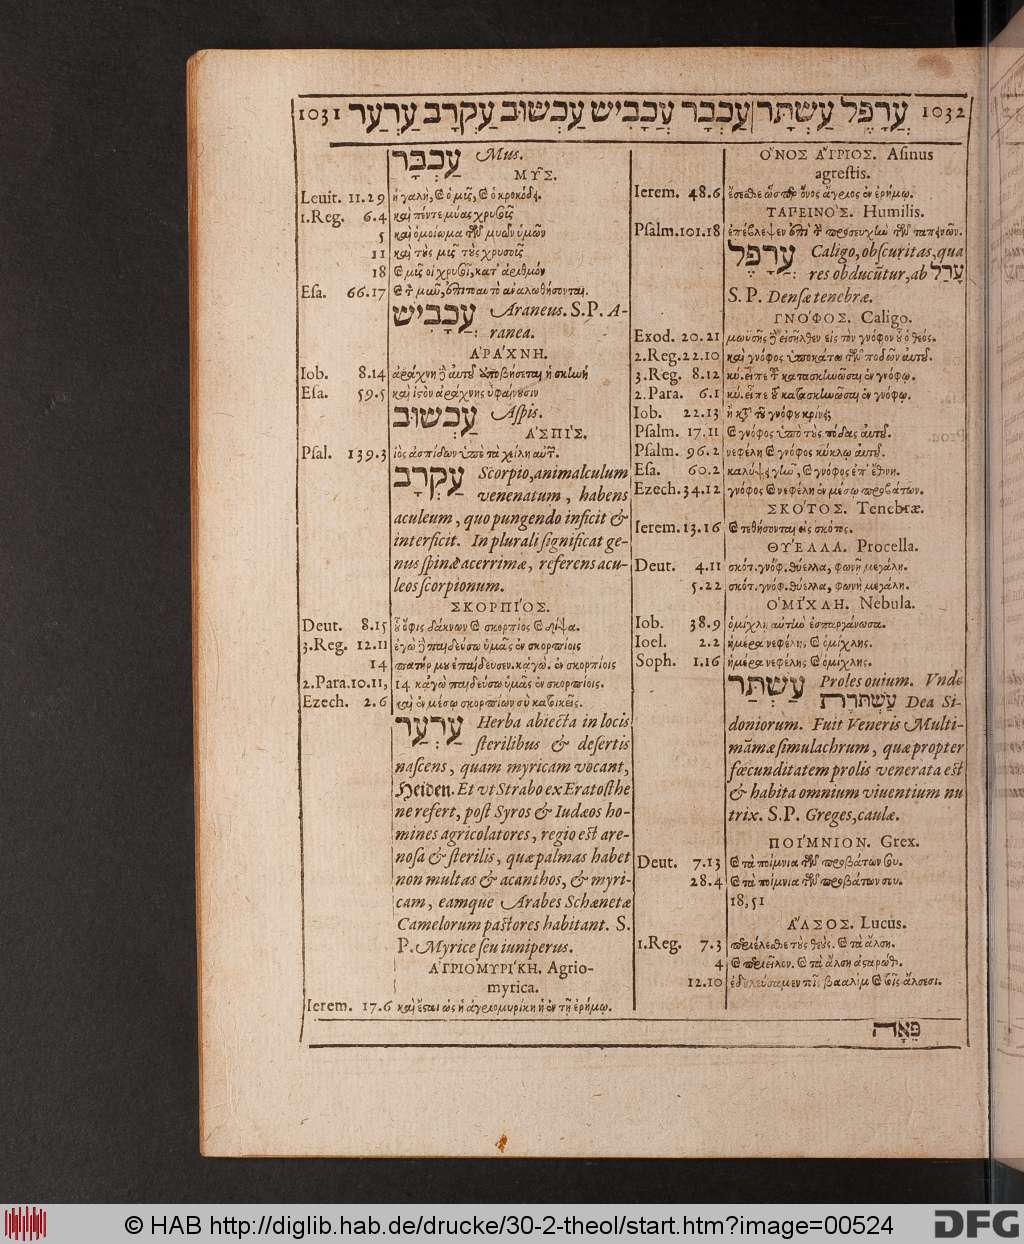 1031 עֲרָפֶל עַשְׁתָּר עַכְבָּר עֲכָבִישׁ עַכְשׁוּב עַקְרָב עַרְעַר 1032
עַכְבָּר Mus.
ΜΥ͂Σ.
Leuit. 11.29 ἡ γαλῆ, ὁ μῦς, ὁ
1.Reg. 6.4 καὶ πέντε μύας χρυσοῦς
5 καὶ ὁμοίωμα τῶν μυῶν ὑμῶν
11 καὶ τοὺς μῦς τοὺς χρυσοῦς
18 μῦς οἱ χρυσοῖ, κατ' ἀριθμὸν
Esa. 66.17
עַכָּבִישׁ Araneus. S.P. A-
ranea.
ἈΡΆΧΝΗ.
Iob. 8.14 ἀράχνη αὐτοῦ ἡ σκηνή
Esa. 59.5 καὶ ἱστὸν ἀράχνης ὑφαίνουσιν
עַכְשׁוּב Aspis.
ἈΣΠΊΣ.
Psal. 139.3 ἰὸς ἀσπίδων ὑπὸ τὰ χείλη αὐτῶν.
עַקְרָב Scorpio, animalculum
venenatum, habens
aculeum, quo pungendo inficit &
interficit. In plurali significat ge-
nus spinæ acerrimæ, referens acu-
leos scorpionum.
ΣΚΟΡΠΊΟΣ.
Deut. 8.15 ὄφις δάκνων σκορπίος δίψα.
3.Reg. 12.11 ἐγὼ παιδεύσω ὑμᾶς ἐν σκορπίοις
14 πατήρ μου ἐπαίδευσεν. κἀγὼ. ἐν σκορπίοις
2.Para. 10.11, 14 κἀγὼ παιδεύσω ὑμᾶς ἐν σκορπίοις.
Ezech. 2.6 καὶ ἐν μέσῳ σκορπίων σὺ κατοικεῖς.
עַרְעַר Herba abiecta in locis
sterilibus & desertis
nascens, quam myricam vocant,
Heiden. Et vt Strabo ex Eratosthe
ne refert, post Syros & Iudæos ho-
mines agricolatores, regio est are-
nosa & sterilis, quæ palmas habet
non multas & acanthos, & myri-
cam, eamque Arabes Schænetæ
Camelorum pastores habitant. S.
P. Myrice seu iuniperus.
ἈΓΡΙΟΜΥΡΊΚΗ. Agrio-
myrica.
Ierem. 17.6 καὶ ἔσται ὡς ἡ ἀγριομυρίκη ἡ ἐν τῇ ἐρήμῳ.
ὌΝΟΣ ἌΓΡΙΟΣ. Asinus
agrestis.
Ierem. 48.6 ἔσεσθε ὥσπερ ὄνος ἄγριος ἐν ἐρήμῳ.
ΤΑΠΕΙΝΌΣ. Humilis.
Psalm. 101.18 ἐπέβλεψεν ἐπὶ προσευχὴν τῶν ταπεινῶν.
עֲרָפֶל Caligo, obscuritas, qua
res obducūtur, ab עָרַל
S. P. Densæ tenebræ.
ΓΝΌΦΟΣ. Caligo.
Exod. 20.21 μωϋσῆς εἰσῆλθεν εἰς τὸν γνόφον ὁ θεός.
2.Reg. 22.10 καὶ γνόφος ὑποκάτω τῶν ποδῶν αὐτοῦ.
3.Reg. 8.12 κύ. εἶπε κατασκηνῶσαι ἐν γνόφῳ.
2.Para. 6.1 κύ. εἶπε κατασκηνῶσαι ἐν γνόφῳ.
Iob. 22.13 ἢ κατὰ τοῦ γνόφου
Psalm. 17.11 γνόφος ὑπὸ τοὺς πόδας αὐτοῦ.
Psalm. 96.2 νεφέλη γνόφος κύκλῳ αὐτοῦ.
Esa. 60.2 καλύψει γῆν, γνόφος ἐπ' ἔθνη.
Ezech. 34.12 γνόφος νεφέλη ἐν μέσῳ προβάτων.
ΣΚΌΤΟΣ. Tenebræ.
Ierem. 13.16 τεθήσονται εἰς σκότος.
ΘΥΈΛΛΑ. Procella.
Deut. 4.11 σκότ. γνόφ. θύελλα, φωνὴ μεγάλη.
5.22 σκότ. γνόφ. θύελλα, φωνὴ μεγάλη.
ὉΜΊΧΛΗ. Nebula.
Iob. 38.9 ὁμίχλῃ αὐτὴν ἐσπαργάνωσα.
Ioel. 2.2 ἡμέρα νεφέλης ὁμίχλης.
Soph. 1.16 ἡμέρα νεφέλης ὁμίχλης.
עַשְׁתַּר Proles ouium. Vnde
עַשְׁתֹּרֶת Dea Si-
doniorum. Fuit Veneris Multi-
māmæ simulachrum, quæ propter
fœcunditatem prolis venerata est
& habita omnium viuentium nu
trix. S.P. Greges, caulæ.
ΠΟΊΜΝΙΟΝ. Grex.
Deut. 7.13 τὰ ποίμνια τῶν προβάτων σου.
28.4 τὰ ποίμνια τῶν προβάτων σου.
18,51
ἌΛΣΟΣ. Lucus.
1.Reg. 7.3 τοὺς θεοὺς. τὰ ἄλση.
4 τὰ ἄλση ἀσταρώθ.
12.10 ἐδουλεύσαμεν βααλὶμ ἄλσεσι.
פֵּאָה
© HAB http://diglib.hab.de/drucke/30-2-theol/start.htm?image=00524
DFG